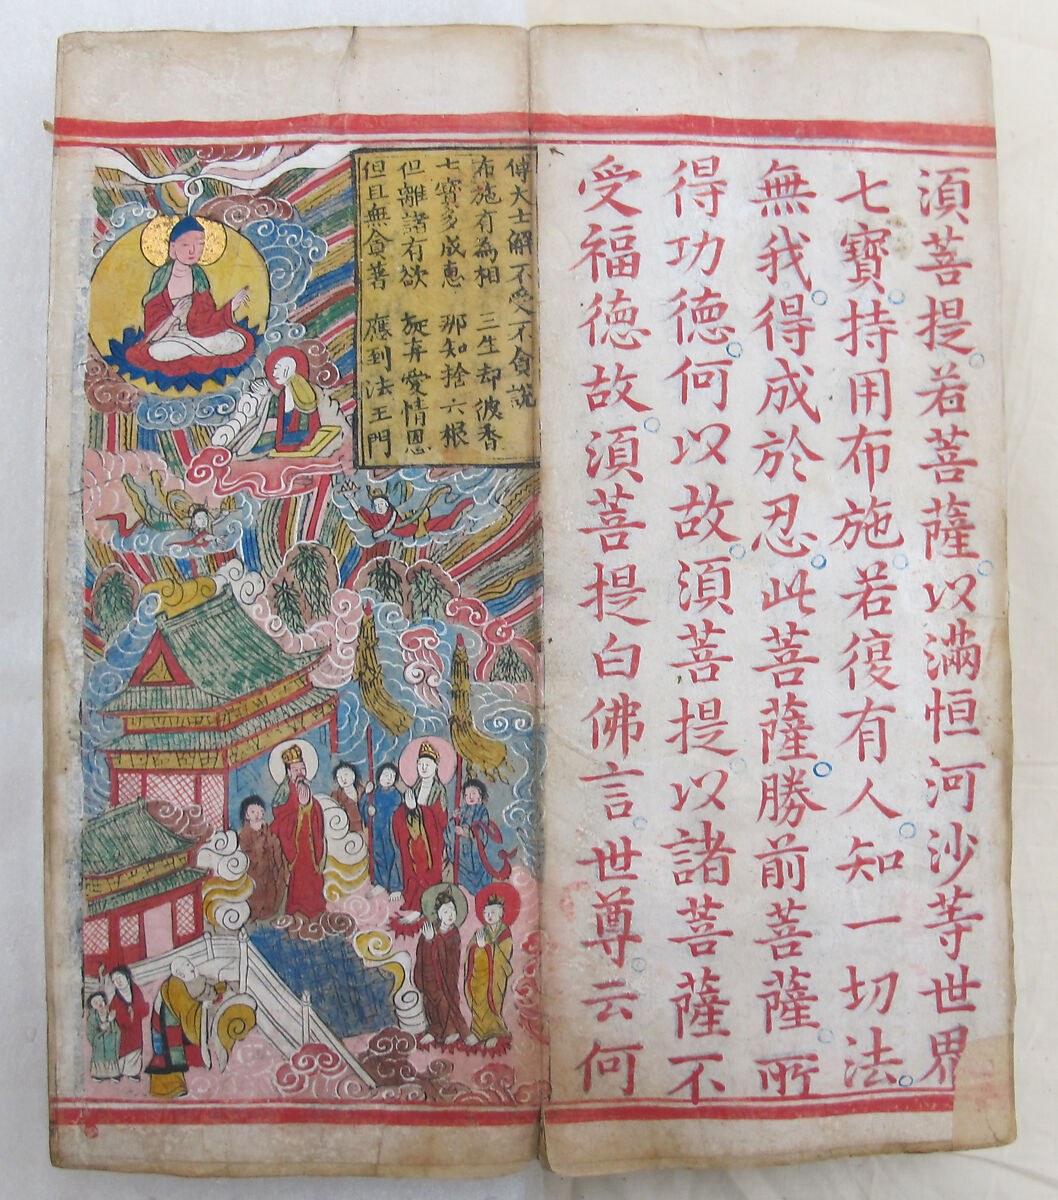 湏菩提。若菩薩。以滿恒河沙等世界
七寶。持用布施。若復有人。知一切法。
無我。得成於忍。此菩薩。勝前菩薩。所
得功德。何以故。湏菩提。以諸菩薩不
受福德故。湏菩提白佛言世尊。云何
傅大士解不受不貪說
布施有為相 三生却彼吞
七寶多成恵 那知捨六根
但離諸有欲 旋弃愛情恩
但且無貪著 應到法王門